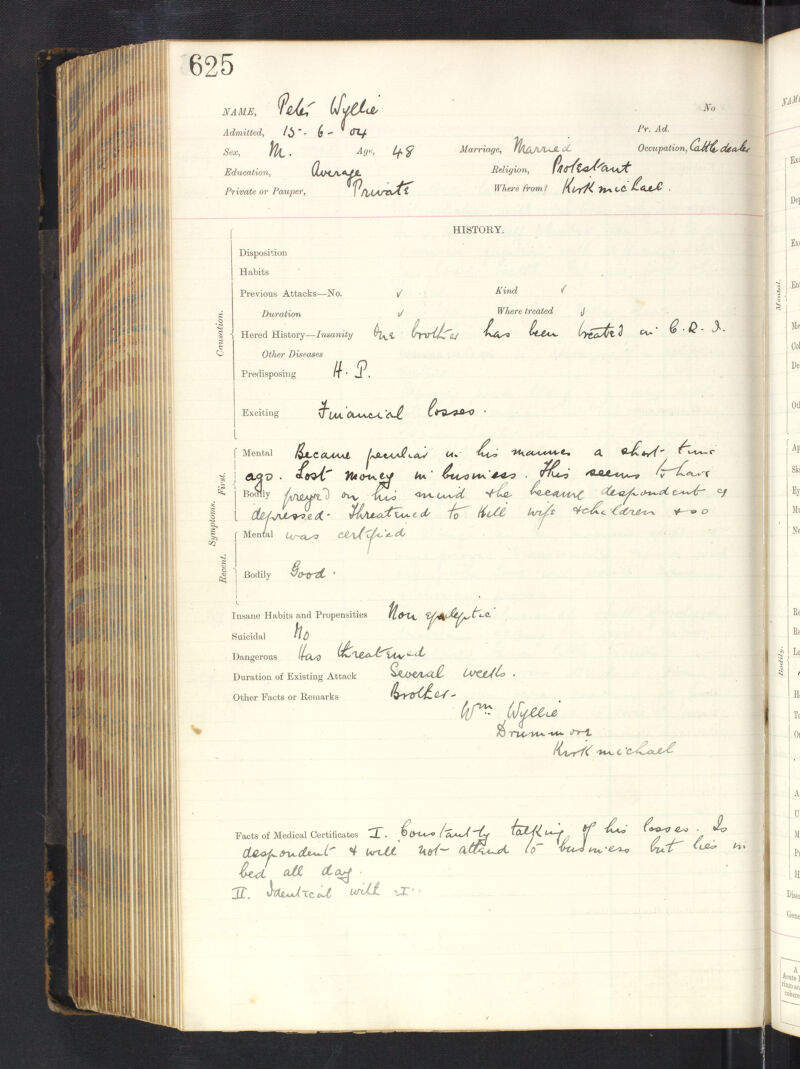 625
NAME, Peter Wyllie No
Admitted, 15-6-04 Pr. Ad.
Sex, M. Age, 48 Marriage, Married Occupation, Cattle dealer
Education, Average Religion, Protestant
Private or Pauper, Private Where from? Kirkmichael.
HISTORY.
Causation.
Disposition
Habits
Previous Attacks—No. ✓ Kind ✓
Duration ✓ Where treated ✓
Hered History—Insanity One brother has been treated in C.R.I.
Other Diseases
Predisposing H.P.
Exciting Financial losses.
Symptoms. First.
Mental Became peculiar in his manner a short time
ago. Lost money in business. This seems to have
Bodily preyed on his mind & he became despondent &
depressed. Threatened to kill wife & children & so
Recent.
Mental was certified
Bodily Good.
Insane Habits and Propensities Non epileptic
Suicidal No
Dangerous Has threatened
Duration of Existing Attack Several weeks.
Other Facts or Remarks Brother-
Wm. Wyllie
Drummore
Kirkmichael
Facts of Medical Certificates I. Constantly talking of his losses. Is
despondent & will not attend to business but lies in
bed all day.
II. Identical with I.
Mental.
Bodily.